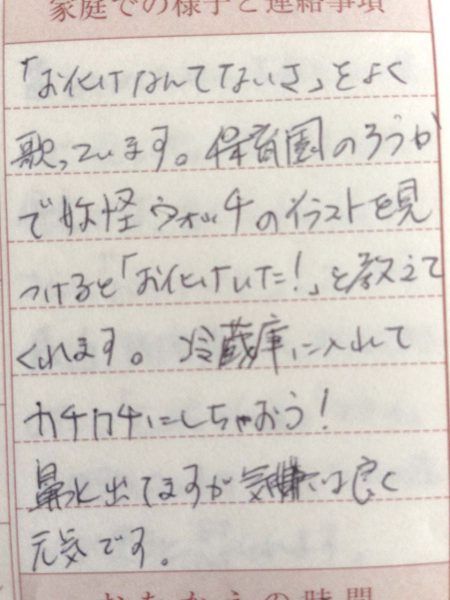 家庭での様子と連絡事項
「お化けなんてないさ」をよく
歌っています。保育園のろうか
で妖怪ウォッチのイラストを見
つけると「お化けいた!」と教えて
くれます。冷蔵庫に入れて
カチカチにしちゃおう!
鼻水出てますが気嫌は良く
元気です。
の時間